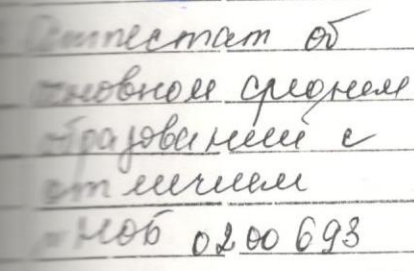 Аттестат об
основном среднем
образовании с
отличием
НОБ 0200693